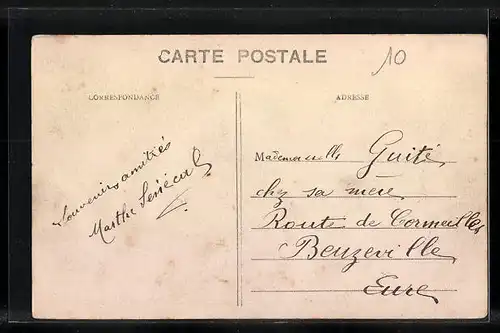 CARTE POSTALE
10
CORRESPONDANCE
ADRESSE
Souvenirs amitiés
Marthe Sénécal
Mademoiselle Guité
chz sa mère
Route de Cormeilles
Beuzeville
Eure